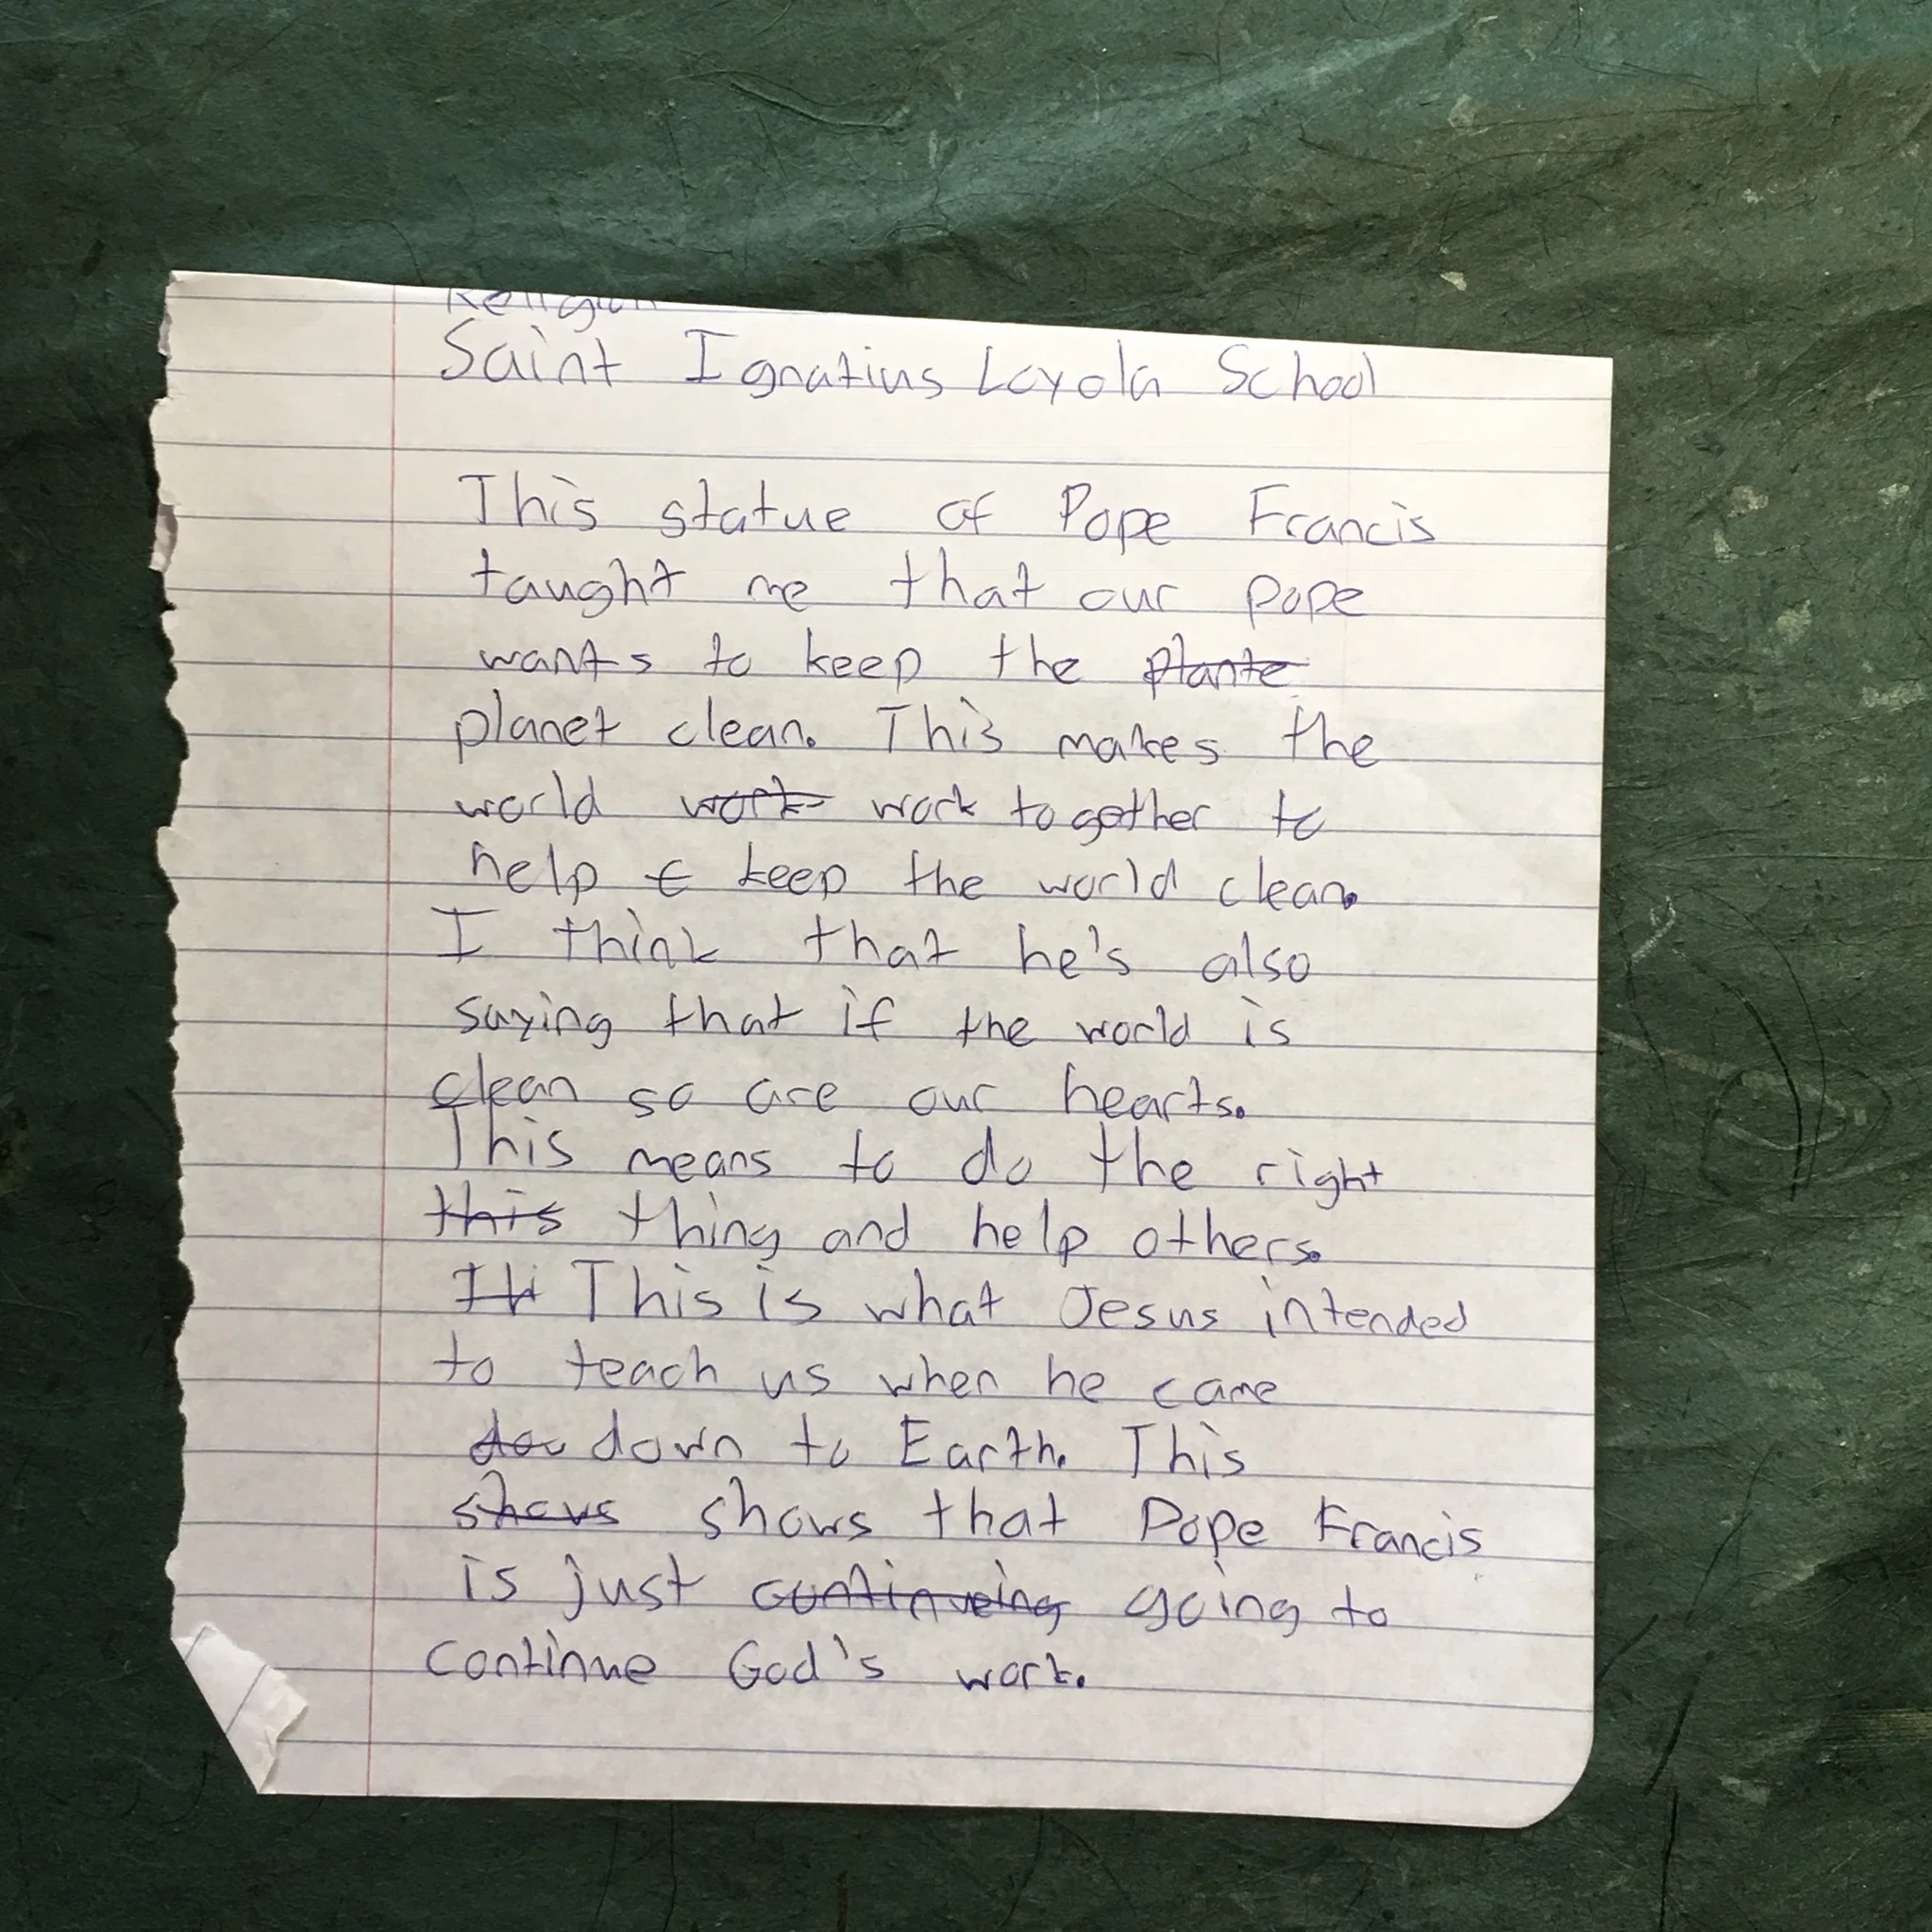 Religion
Saint Ignatius Loyola School
This statue of Pope Francis
taught me that our pope
wants to keep the plante
planet clean. This makes the
world work work together to
help t keep the world clean.
I think that he's also
saying that if the world is
clean so are our hearts.
This means to do the right
this thing and help others.
This is what Jesus intended
to teach us when he came
dow down to Earth. This
shows shows that Pope Francis
is just continueing going to
continue God's work.